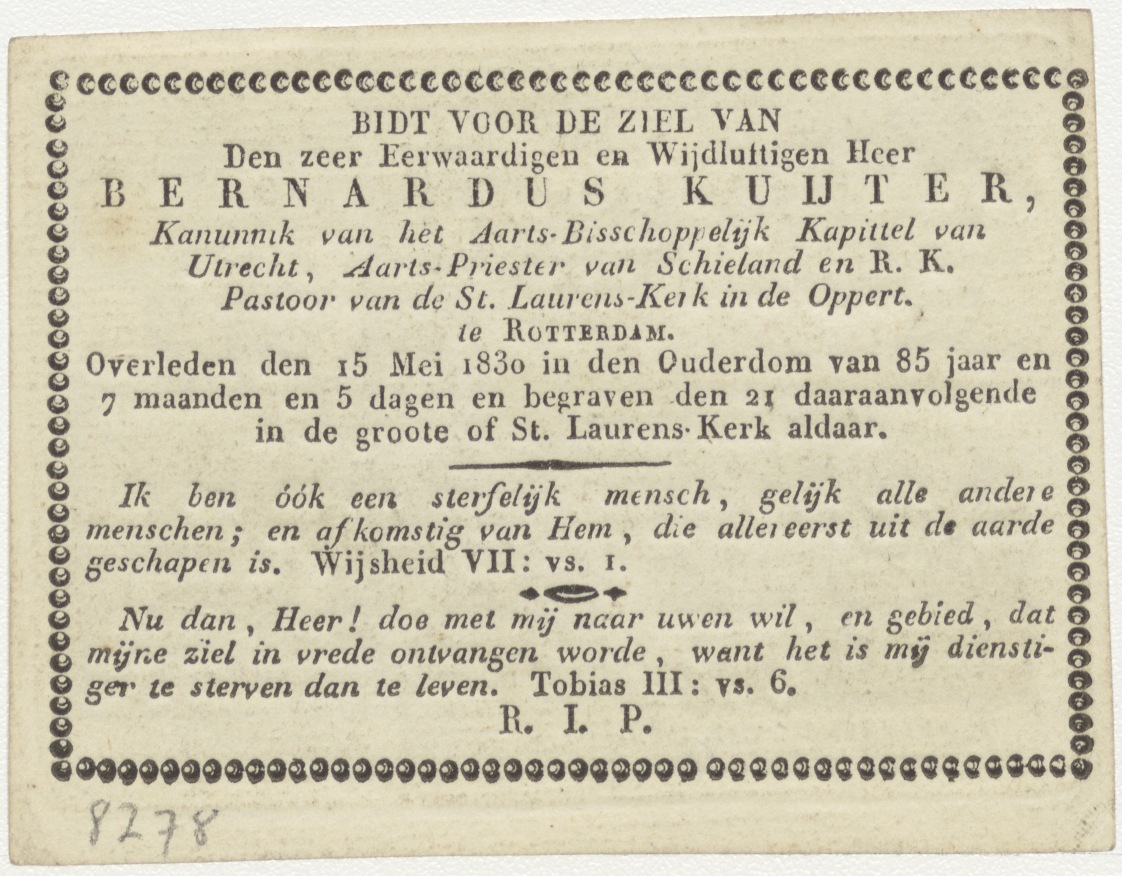 BIDT VOOR DE ZIEL VAN
Den zeer Eerwaardigen en Wijdluftigen Heer
BERNARDUS KUIJTER,
Kanunnik van het Aarts-Bisschoppelijk Kapittel van
Utrecht, Aarts-Priester van Schieland en R. K.
Pastoor van de St. Laurens-Kerk in de Oppert.
te ROTTERDAM.
Overleden den 15 Mei 1830 in den Ouderdom van 85 jaar en
7 maanden en 5 dagen en begraven den 21 daaraanvolgende
in de groote of St. Laurens-Kerk aldaar.
Ik ben óók een sterfelijk mensch, gelijk alle andere
menschen; en afkomstig van Hem, die allereerst uit de aarde
geschapen is. Wijsheid VII: vs. 1.
Nu dan, Heer! doe met mij naar uwen wil, en gebied, dat
mijne ziel in vrede ontvangen worde, want het is mij diensti-
ger te sterven dan te leven. Tobias III: vs. 6.
R. I. P.
8278